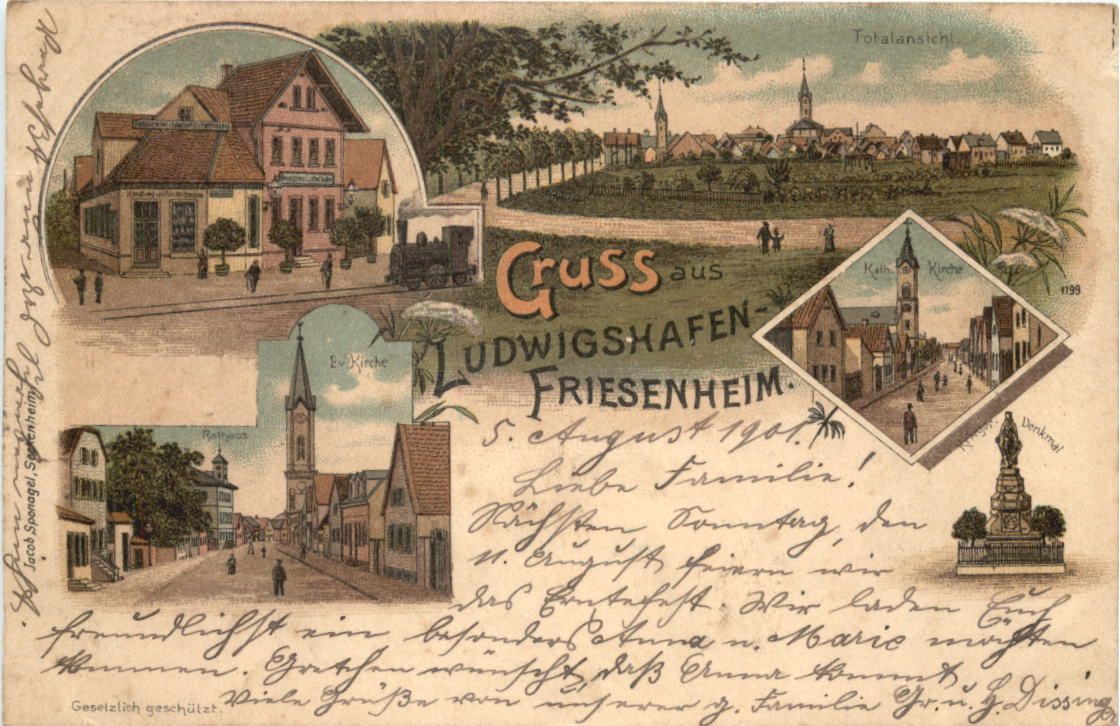 Totalansicht.
Gruss aus
LUDWIGSHAFEN-
FRIESENHEIM.
Kath. Kirche
1199
Ev. Kirche
Rathaus
Krieger- Denkmal
Jacob Sponagel, Seckenheim.
5. August 1901.
Liebe Familie!
Nächsten Sonntag, den
11. August feiern wir
das Erntefest Wir laden Euch
freundlichst ein besonders Anna u. Marie möchten
kommen. Gretchen wünscht, daß Anna kommt
Viele Grüße von unserer g. Familie Gr. u. H. Dissing
Gesetzlich geschützt.